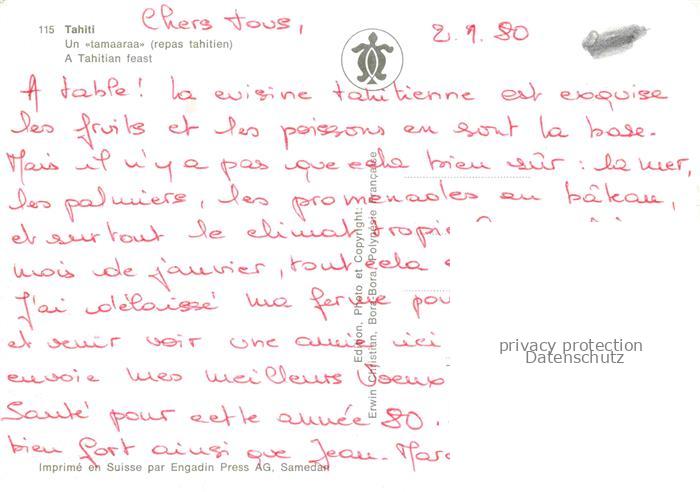 115 Tahiti
Un «tamaaraa» (repas tahitien)
A Tahitian feast
Chers tous,
2.1.80
A table! La cuisine tahitienne est exquise
les fruits et les poissons en sont la base.
Mais il n'y a pas que cela bien sûr: la mer,
les palmiers, les promenades en bâteau,
et surtout le climat tropi
mois de janvier, tout cela
J'ai délaissé ma ferme pou
et venir voir une amie ici
envoie mes meilleurs Voeux
Santé pour cette année 80.
bien fort ainsi que Jean-Marc
Edition, Photo et Copyright:
Erwin Christian, Bora-Bora, Polynésie Française
privacy protection
Datenschutz
Imprimé en Suisse par Engadin Press AG, Samedan